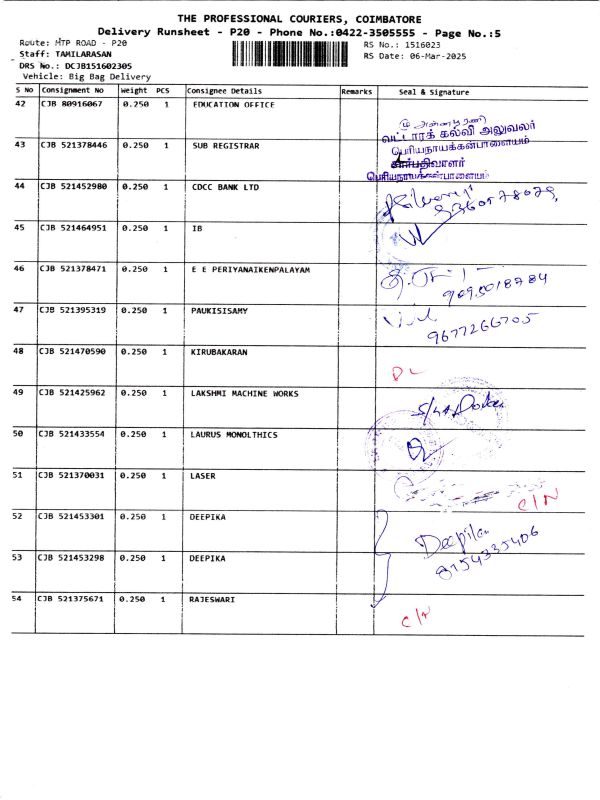 THE PROFESSIONAL COURIERS, COIMBATORE
Delivery Runsheet - P20 - Phone No.:0422-3505555 - Page No.:5
Route: MTP ROAD - P20
RS No.: 1516023
Staff: TAMILARASAN
RS Date: 06-Mar-2025
DRS No.: DCJB151602305
Vehicle: Big Bag Delivery
S No Consignment No Weight PCS Consignee Details Remarks Seal & Signature
42 CJB 80916067 0.250 1 EDUCATION OFFICE
வட்டாரக் கல்வி அலுவலர்
43 CJB 521378446 0.250 1 SUB REGISTRAR
பெரியநாயக்கன்பாளையம்
சார்பதிவாளர்
பெரியநாயக்கன்பாளையம்
44 CJB 521452980 0.250 1 CDCC BANK LTD
45 CJB 521464951 0.250 1 IB
46 CJB 521378471 0.250 1 E E PERIYANAIKENPALAYAM
9095018784
47 CJB 521395319 0.250 1 PAUKISISAMY
9677266705
48 CJB 521470590 0.250 1 KIRUBAKARAN
DL
49 CJB 521425962 0.250 1 LAKSHMI MACHINE WORKS
50 CJB 521433554 0.250 1 LAURUS MONOLTHICS
51 CJB 521370031 0.250 1 LASER
C/N
52 CJB 521453301 0.250 1 DEEPIKA
Deepika
8154335406
53 CJB 521453298 0.250 1 DEEPIKA
54 CJB 521375671 0.250 1 RAJESWARI
C/N